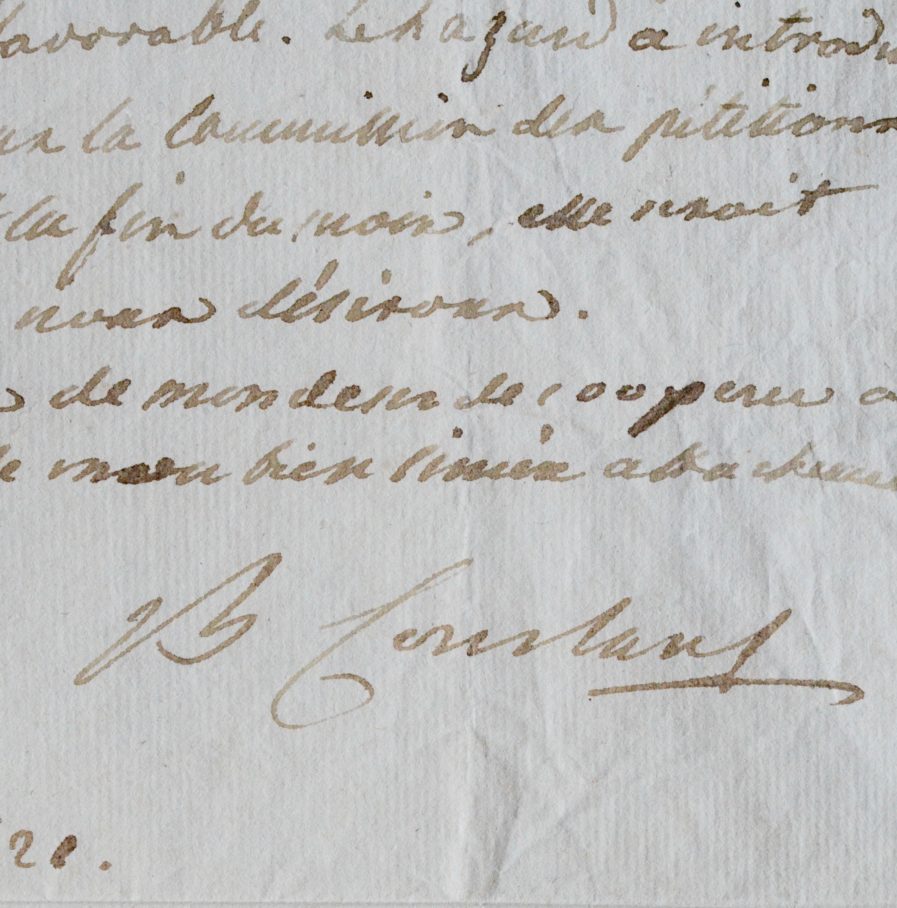 favorable. Le hazard a introdu
la Commission des pétitions
la fin du mois, elle seroit
nous désirons.
de mon desir de coopérer a
de mon bien sincère attachem
B Constant